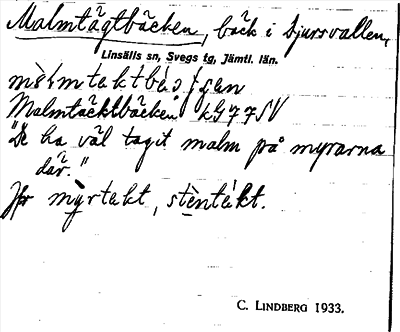 Malmtägtbäcken, bäck i Djursvallen,
Linsälls sn, Svegs tg, Jämtl. län.
Malmtäcktbäcken kG77SV
"De ha väl tagit malm på myrarna
där."
Jfr myrtekt, stentekt.
C. LINDBERG 1933.